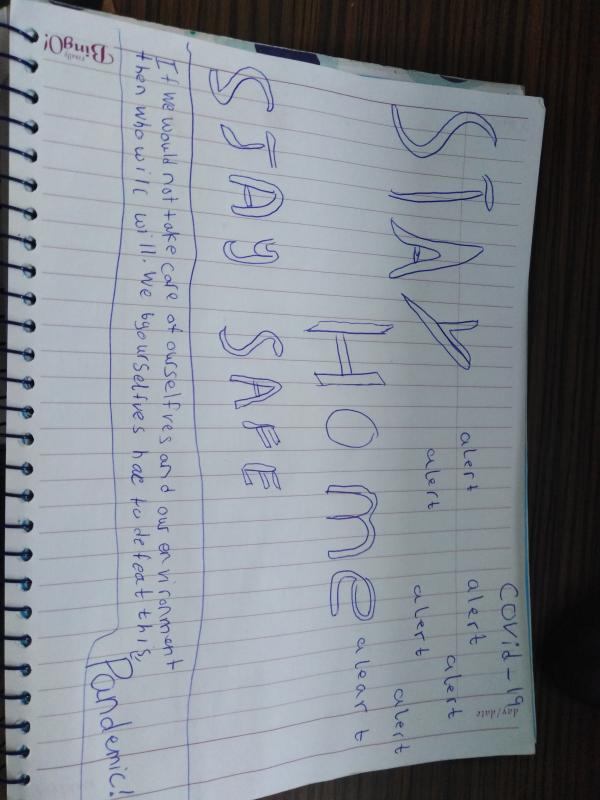 Covid-19
day/date
STAY
alert
alert
alert
alert
alert
alert
HOme
aleart
STAY SAFE
If we would not take care of ourselfres and our environment
then who wilc will. We byourselfres hae to defeat this,
Pandemic!
really
BingO!